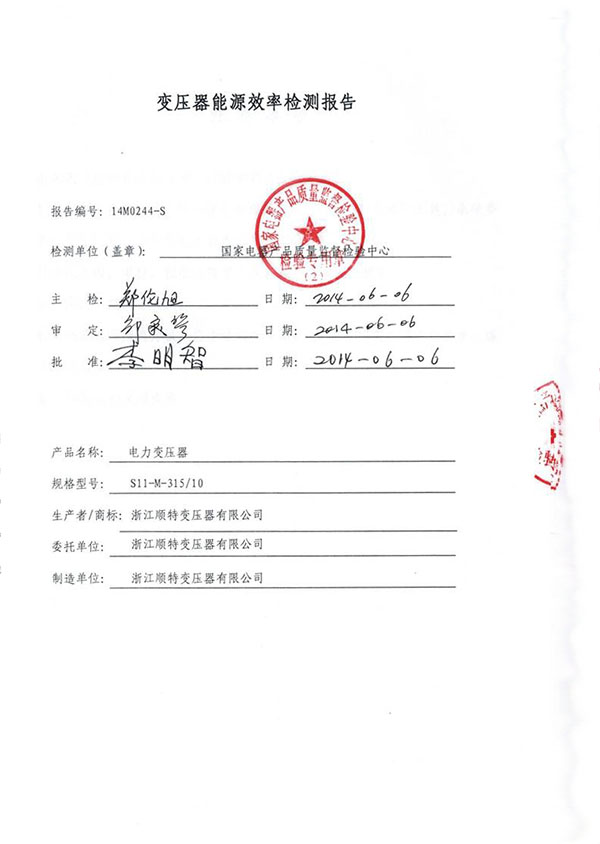 变压器能源效率检测报告
报告编号: 14M0244-S
检测单位(盖章): 国家电器产品质量监督检验中心
国家电器产品质量监督检验中心
检验专用章
(2)
主 检: 郑伦旭 日 期: 2014-06-06
审 定: 日 期: 2014-06-06
批 准: 李明智 日 期: 2014-06-06
产品名称: 电力变压器
规格型号: S11-M-315/10
生产者/商标: 浙江顺特变压器有限公司
委托单位: 浙江顺特变压器有限公司
制造单位: 浙江顺特变压器有限公司